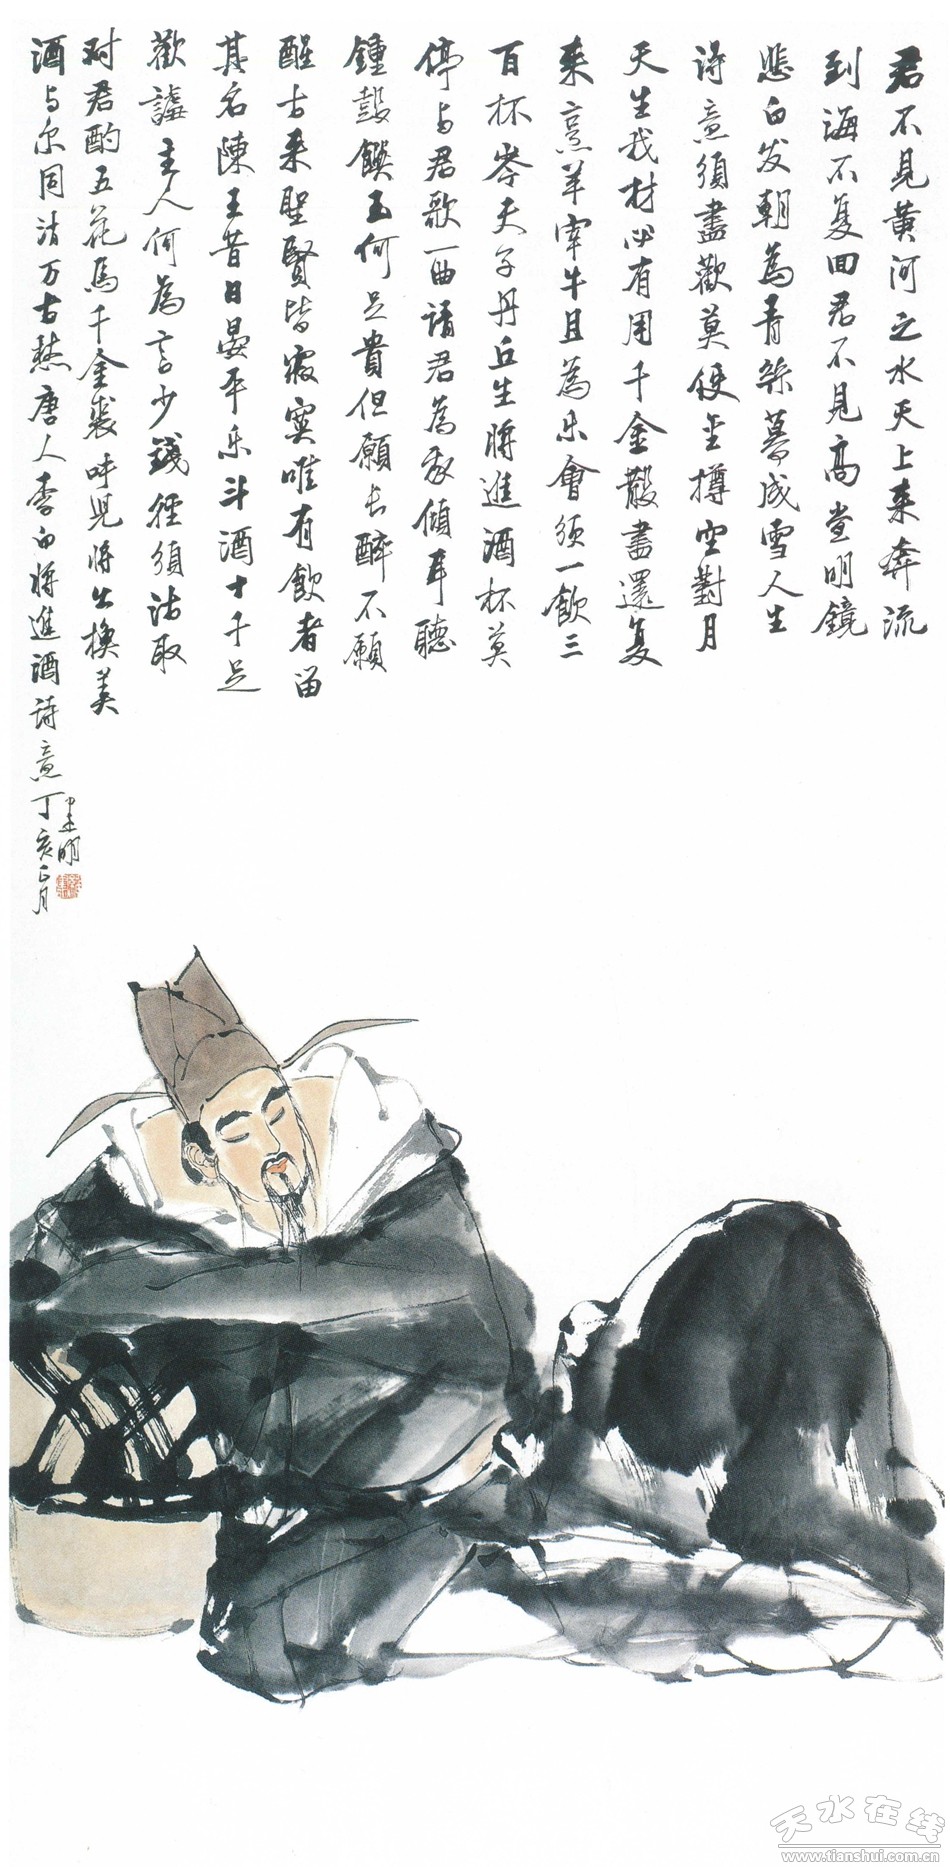 君不見黃河之水天上来奔流
到海不复回君不見高堂明鏡
悲白发朝為青絲暮成雪人生
诗意須盡歡莫使金樽空對月
天生我材必有用千金散盡還复
来烹羊宰牛且為乐會须一飲三
百杯岑夫子丹丘生將進酒杯莫
停与君歌一曲請君為我傾耳聽
鍾鼓饌玉何足貴但願长醉不願
醒古来聖賢皆寂寞唯有飲者留
其名陳王昔日晏平乐斗酒十千足
歡謔主人何為言少錢徑須沽取
对君酌五花馬千金裘呼兒將出換美
酒与尔同沽万古愁唐人李白將進酒詩意丁亥正月
明
天水在线
www.tianshui.com.cn